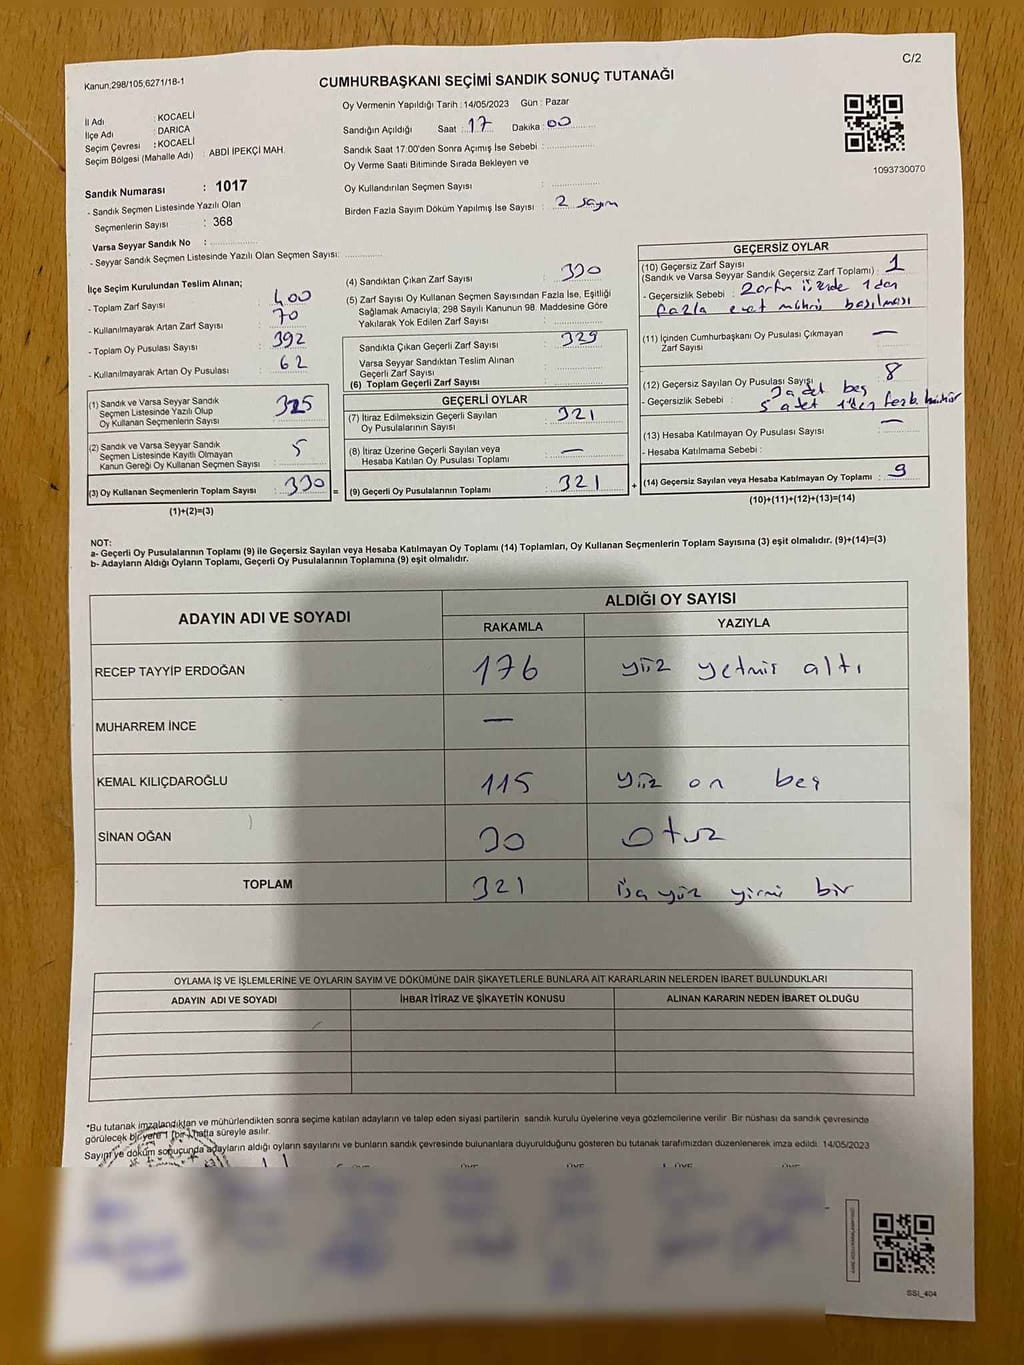 C/2
Kanun;298/105,6271/18-1
CUMHURBAŞKANI SEÇİMİ SANDIK SONUÇ TUTANAĞI
Oy Vermenin Yapıldığı Tarih : 14/05/2023 Gün : Pazar
İl Adı : KOCAELİ
İlçe Adı : DARICA
Seçim Çevresi : KOCAELİ
Seçim Bölgesi (Mahalle Adı) : ABDİ İPEKÇİ MAH.
Sandığın Açıldığı Saat : 17 Dakika : 00
Sandık Saat 17:00'den Sonra Açımış İse Sebebi :
Oy Verme Saati Bitiminde Sırada Bekleyen ve
Oy Kullandırılan Seçmen Sayısı :
Birden Fazla Sayım Döküm Yapılmış İse Sayısı : 2 sayım
1093730070
Sandık Numarası : 1017
- Sandık Seçmen Listesinde Yazılı Olan
Seçmenlerin Sayısı : 368
Varsa Seyyar Sandık No :
- Seyyar Sandık Seçmen Listesinde Yazılı Olan Seçmen Sayısı:
İlçe Seçim Kurulundan Teslim Alınan;
- Toplam Zarf Sayısı : 400
- Kullanılmayarak Artan Zarf Sayısı : 70
- Toplam Oy Pusulası Sayısı : 392
- Kullanılmayarak Artan Oy Pusulası : 62
(1) Sandık ve Varsa Seyyar Sandık
Seçmen Listesinde Yazılı Olup
Oy Kullanan Seçmenlerin Sayısı : 325
(2) Sandık ve Varsa Seyyar Sandık
Seçmen Listesinde Kayıtlı Olmayan
Kanun Gereği Oy Kullanan Seçmen Sayısı : 5
(3) Oy Kullanan Seçmenlerin Toplam Sayısı : 330 =
(1)+(2)=(3)
(4) Sandıktan Çıkan Zarf Sayısı : 330
(5) Zarf Sayısı Oy Kullanan Seçmen Sayısından Fazla İse, Eşitliği
Sağlamak Amacıyla; 298 Sayılı Kanunun 98. Maddesine Göre
Yakılarak Yok Edilen Zarf Sayısı :
Sandıkta Çıkan Geçerli Zarf Sayısı : 329
Varsa Seyyar Sandıktan Teslim Alınan
Geçerli Zarf Sayısı :
(6) Toplam Geçerli Zarf Sayısı :
GEÇERLİ OYLAR
(7) İtiraz Edilmeksizin Geçerli Sayılan
Oy Pusulalarının Sayısı : 321
(8) İtiraz Üzerine Geçerli Sayılan veya
Hesaba Katılan Oy Pusulası Toplamı : —
(9) Geçerli Oy Pusulalarının Toplamı : 321 +
GEÇERSİZ OYLAR
(10) Geçersiz Zarf Sayısı
(Sandık ve Varsa Seyyar Sandık Geçersiz Zarf Toplamı) : 1
- Geçersizlik Sebebi : Zarfın üzerinde 1den
fazla evet mührü basılması
(11) İçinden Cumhurbaşkanı Oy Pusulası Çıkmayan
Zarf Sayısı : —
(12) Geçersiz Sayılan Oy Pusulası Sayısı : 8
- Geçersizlik Sebebi : 3 adet boş
5 adet 1'den fazla mühür
(13) Hesaba Katılmayan Oy Pusulası Sayısı : —
- Hesaba Katılmama Sebebi :
(14) Geçersiz Sayılan veya Hesaba Katılmayan Oy Toplamı : 9
(10)+(11)+(12)+(13)=(14)
NOT:
a- Geçerli Oy Pusulalarının Toplamı (9) ile Geçersiz Sayılan veya Hesaba Katılmayan Oy Toplamı (14) Toplamları, Oy Kullanan Seçmenlerin Toplam Sayısına (3) eşit olmalıdır. (9)+(14)=(3)
b- Adayların Aldığı Oyların Toplamı, Geçerli Oy Pusulalarının Toplamına (9) eşit olmalıdır.
ADAYIN ADI VE SOYADI
ALDIĞI OY SAYISI
RAKAMLA YAZIYLA
RECEP TAYYİP ERDOĞAN 176 yüz yetmiş altı
MUHARREM İNCE —
KEMAL KILIÇDAROĞLU 115 yüz on beş
SİNAN OĞAN 30 otuz
TOPLAM 321 üç yüz yirmi bir
OYLAMA İŞ VE İŞLEMLERİNE VE OYLARIN SAYIM VE DÖKÜMÜNE DAİR ŞİKAYETLERLE BUNLARA AİT KARARLARIN NELERDEN İBARET BULUNDUKLARI
ADAYIN ADI VE SOYADI İHBAR İTİRAZ VE ŞİKAYETİN KONUSU ALINAN KARARIN NEDEN İBARET OLDUĞU
*Bu tutanak imzalandıktan ve mühürlendikten sonra seçime katılan adayların ve talep eden siyasi partilerin sandık kurulu üyelerine veya gözlemcilerine verilir. Bir nüshası da sandık çevresinde
görülecek bir yere 1 (bir) hafta süreyle asılır.
Sayım ve döküm sonucunda adayların aldığı oyların sayılarını ve bunların sandık çevresinde bulunanlara duyurulduğunu gösteren bu tutanak tarafımızdan düzenlenerek imza edildi. 14/05/2023
SSI_404